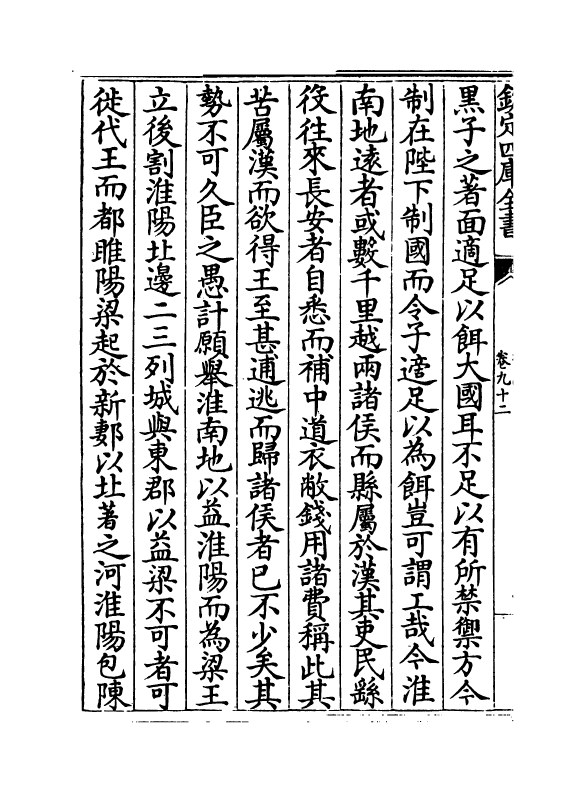 欽定四庫全書
卷九十二
黒子之著面適足以餌大國耳不足以有所禁禦方今
制在陛下制國而令子適足以為餌豈可謂工哉今淮
南地逺者或數千里越兩諸侯而縣屬於漢其吏民繇
役往來長安者自悉而補中道衣敝錢用諸費稱此其
苦屬漢而欲得王至甚逋逃而歸諸侯者已不少矣其
勢不可久臣之愚計願舉淮南地以益淮陽而為梁王
立後割淮陽北邊二三列城與東郡以益梁不可者可
徙代王而都睢陽梁起於新郪以北著之河淮陽包陳